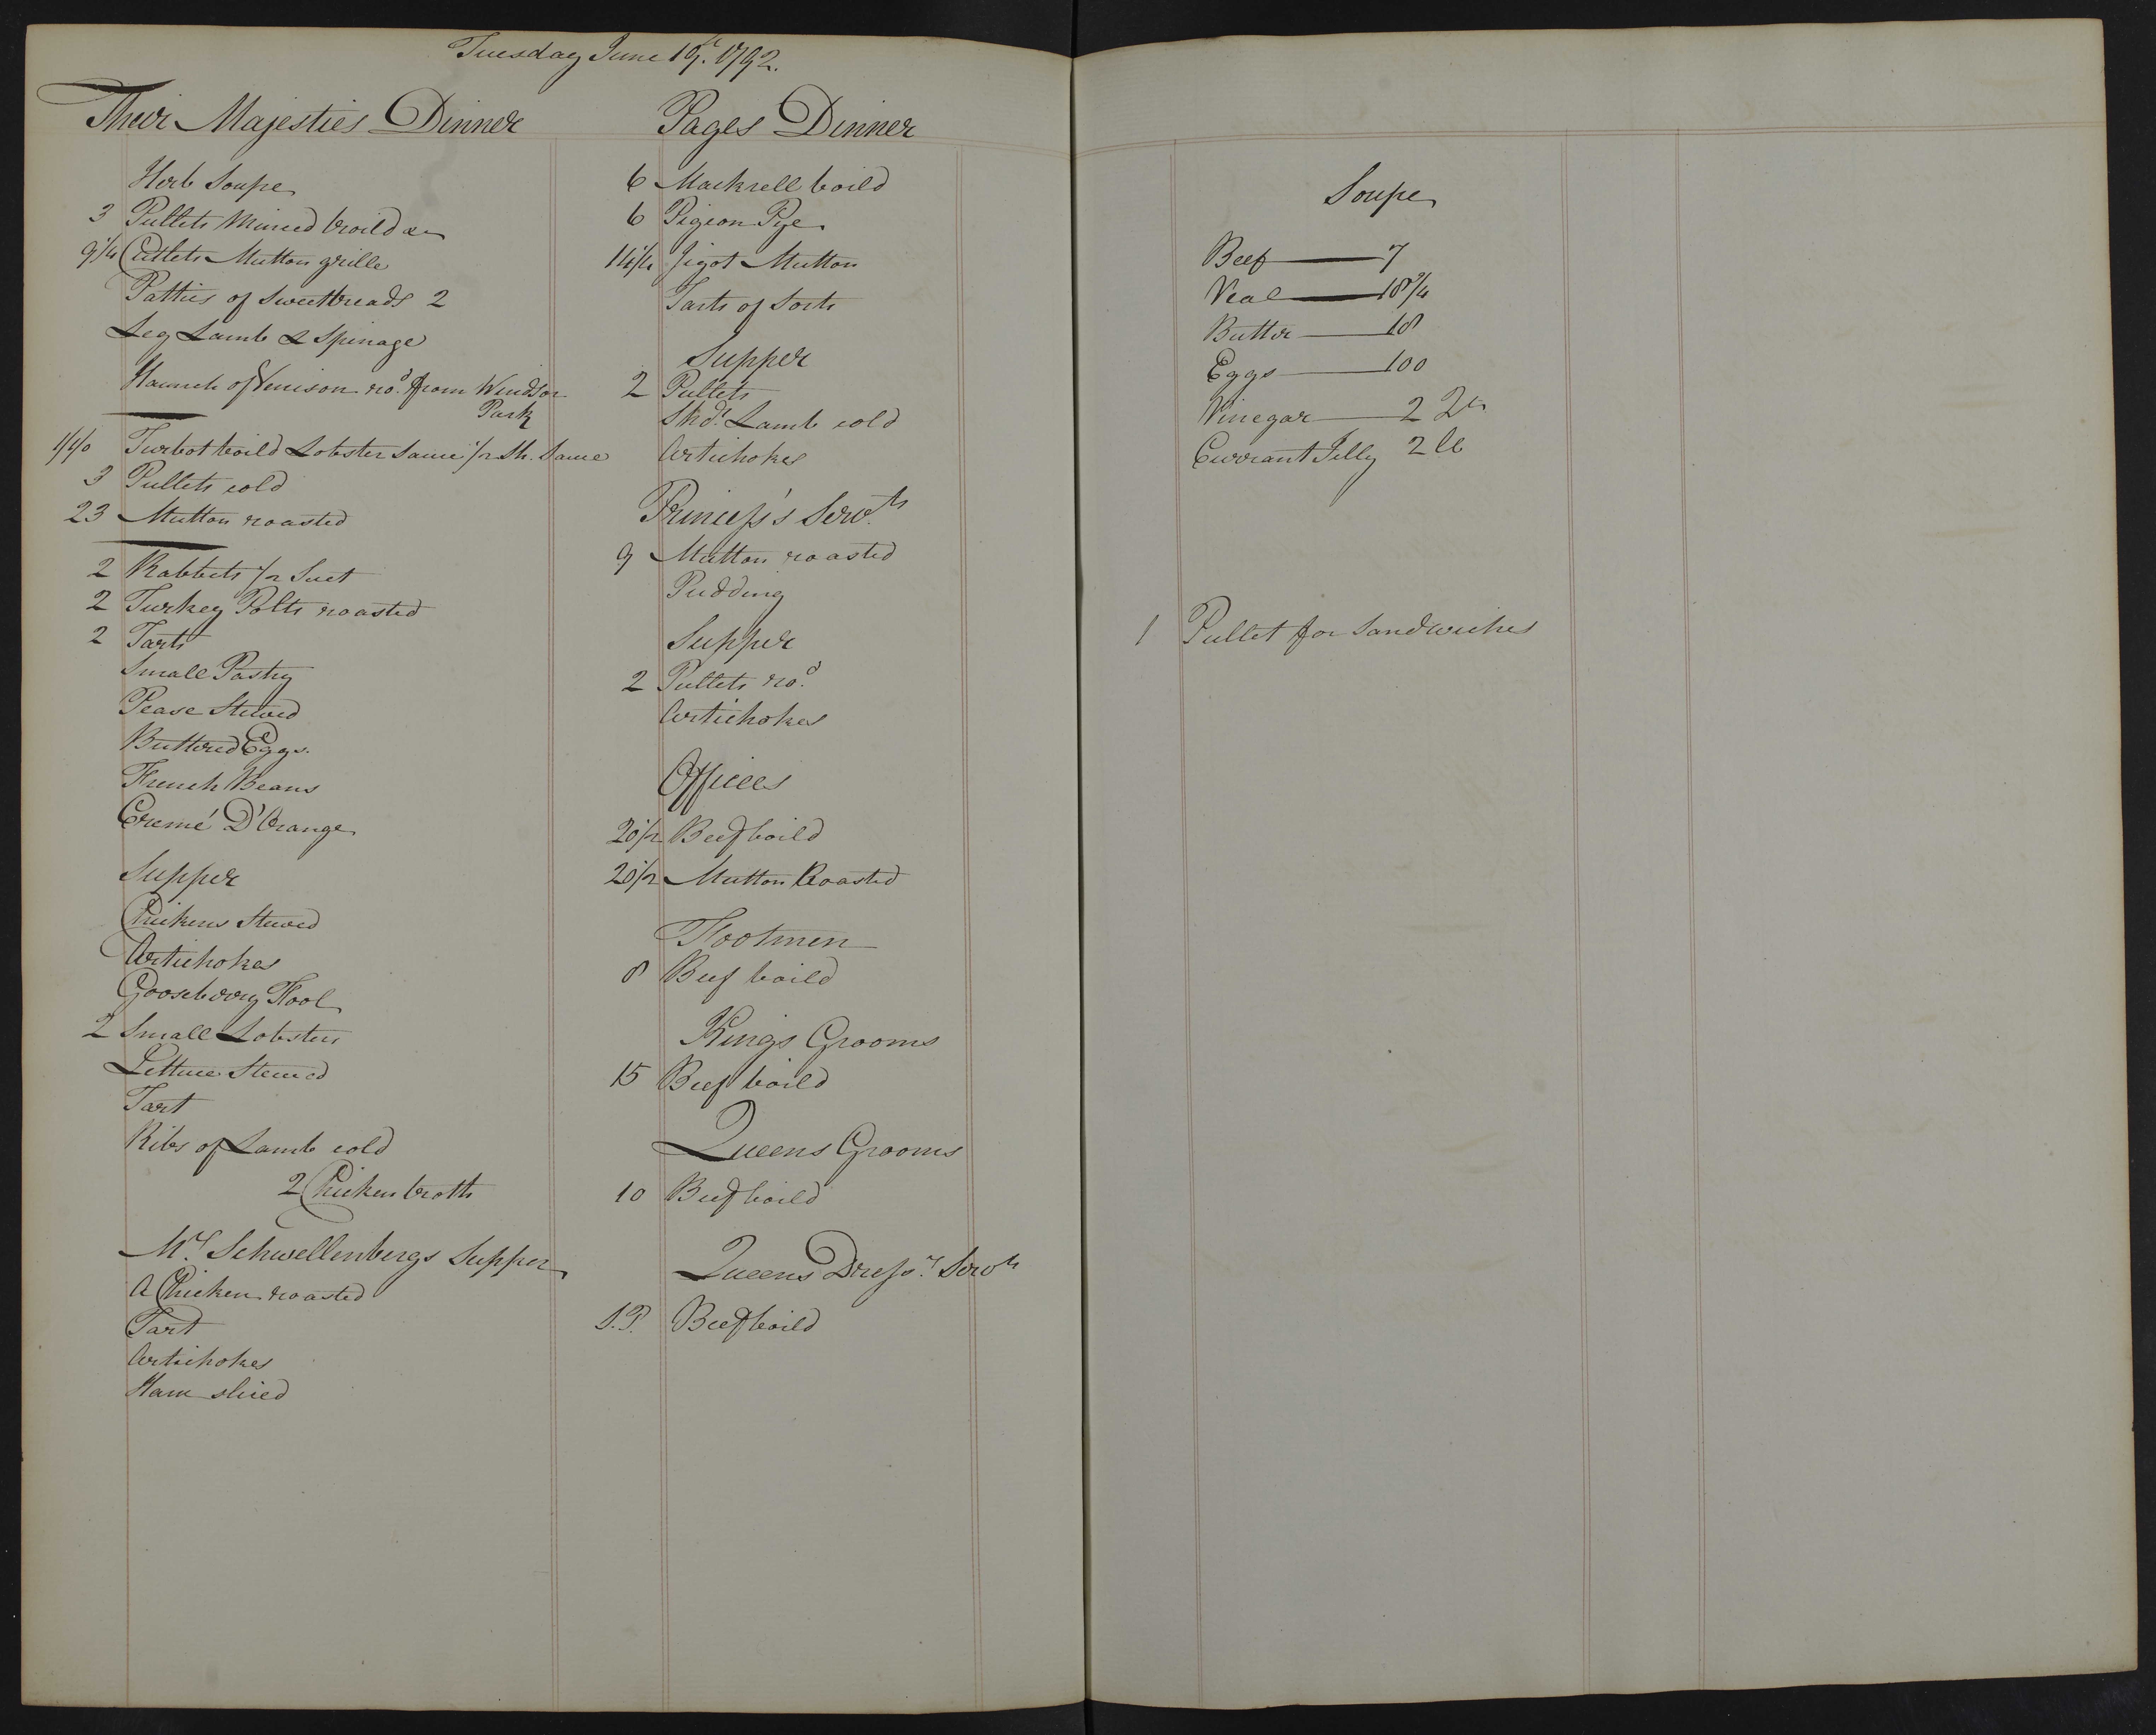 Tuesday June 19th. 1792.
Their Majesties Dinner
Herb Soupe
3 Pullets Minced broild &c
9 1/4 Cutlets Mutton grille
Patties of Sweetbreads 2
Leg Lamb & Spinage
Haunch of Venison rod. from Windsor
Park
1/1/0 Turbot boild Lobster Sauce 1/2 Sh. Sauce
3 Pullets cold
23 Mutton roasted
2 Rabbets 1/2 Suet
2 Turkey Polts roasted
2 Tarts
Small Pastry
Pease Stewed
Buttered Eggs.
French Beans
Cremé D'Orange
Supper
Chickens Stewed
Artichokes
Gooseberry Fool
2 Small Lobsters
Lettuce Stewed
Tart
Ribs of Lamb cold
2 Chicken broth
Mrs. Schwellenbergs Supper
A Chicken roasted
Tart
Artichokes
Ham sliced
Pages Dinner
6 Mackrell boild
6 Pigeon Pye
14 1/4 Jigot Mutton
Tarts of Sorts
Supper
2 Pullets
Shdr. Lamb cold
Artichokes
Princess's Servts.
9 Mutton roasted
Pudding
Supper
2 Pullets rod.
Artichokes
Offices
20 1/2 Beef boild
20 1/2 Mutton Roasted
Footmen
8 Beef boild
Kings Grooms
15 Beef boild
Queens Grooms
10 Beef boild
Queens Dressr. Servts
Beef boild
Soupe
Beef 7
Veal 18 3/4
Butter 18
Eggs 100
Vinegar 2 Qts
Currant Jelly 2 lb
1 Pullet for Sandwiches